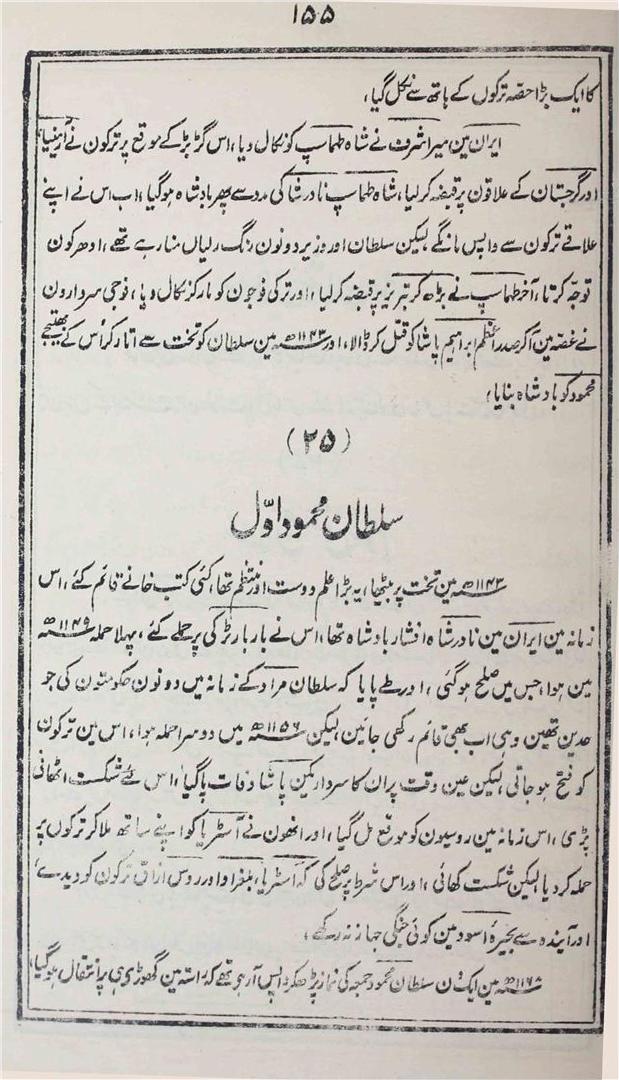 ۱۵۵
کا ایک بڑا حصّہ ترکوں کے ہاتھ سے نکل گیا،
ایران مین میر اشرف نے شاہ طہماسپ کو نکال دیا، اس گڑبڑ کے موقع پر ترکون نے آرمینیا
اور گرجستان کے علاقون پر قبضہ کرلیا، شاہ طہماسپ نادر شاہ کی مدد سے پھر بادشاہ ہوگیا، اب اس نے اپنے
علاقے ترکون سے واپس مانگے، لیکن سلطان اور وزیر دونون رنگ رلیان منا رہے تھے، ادھر کون
توجہ کرتا، آخر طہماسپ نے بڑھ کر تبریز پر قبضہ کرلیا، اور ترکی فوجون کو مار کر نکال دیا، فوجی سردارون
نے غصہ مین آکر صدر اعظم ابراہیم پاشا کو قتل کر ڈالا، اور ۱۱۴۳ھ مین سلطان کو تخت سے اتار کر اُس کے بھتیجے
محمود کو بادشاہ بنایا،
(۲۵)
سلطان محمود اوّل
۱۱۴۳ھ مین تخت پر بیٹھا، یہ بڑا علم دوست اور منتظم تھا، کئی کتب خانے قائم کئے، اس
زمانہ مین ایران مین نادر شاہ افشار بادشاہ تھا، اس نے بار بار ٹرکی پر حملے کئے، پہلا حملہ ۱۱۴۹ھ
مین ہوا، جس مین صلح ہوگئی، اور طے پایا کہ سلطان مراد کے زمانہ مین دونون حکومتون کی جو
حدین تھین وہی اب بھی قائم رکھی جائین، لیکن ۱۱۵۶ھ میں دوسرا حملہ ہوا، اس مین ترکون
کو فتح ہو جاتی، لیکن عین وقت پر ان کا سردار یکن پاشا وفات پاگیا، اس لئے شکست اٹھانی
پڑی، اس زمانہ مین روسیون کو موقع مل گیا، اور انھون نے آسٹریا کو اپنے ساتھ ملا کر ترکون پر
حملہ کر دیا، لیکن شکست کھائی، اور اس شرط پر صلح کی کہ آسٹریا، بلغراد اور روس ازاق ترکون کو دیدے،
اور آیندہ سے بحیرۂ اسود مین کوئی جنگی جہاز نہ رکھے،
۱۱۶۸ھ مین ایک دن سلطان محمود جمعہ کی نماز پڑھ کر واپس آرہے تھے کہ راستہ مین گھوڑی ہی پر انتقال ہوگیا،